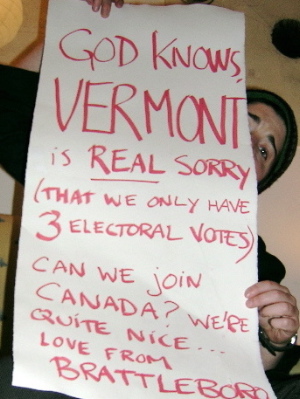 GOD KNOWS,
VERMONT
is REAL SORRY
(THAT WE ONLY HAVE
3 ELECTORAL VOTES)
CAN WE JOIN
CANADA? WE'RE
QUITE NICE...
LOVE FROM
BRATTLEBORO